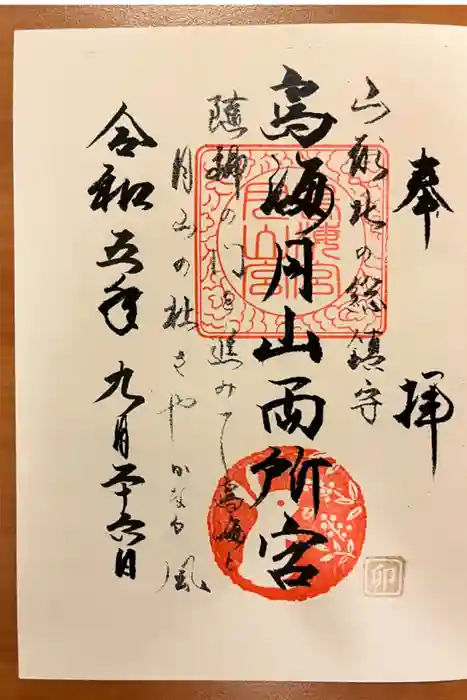 奉拝
山形北の総鎮守
鳥海月山両所宮
隨神の門を進みて鳥海と
月山の社さやかなる風
令和五年九月二十六日
卯